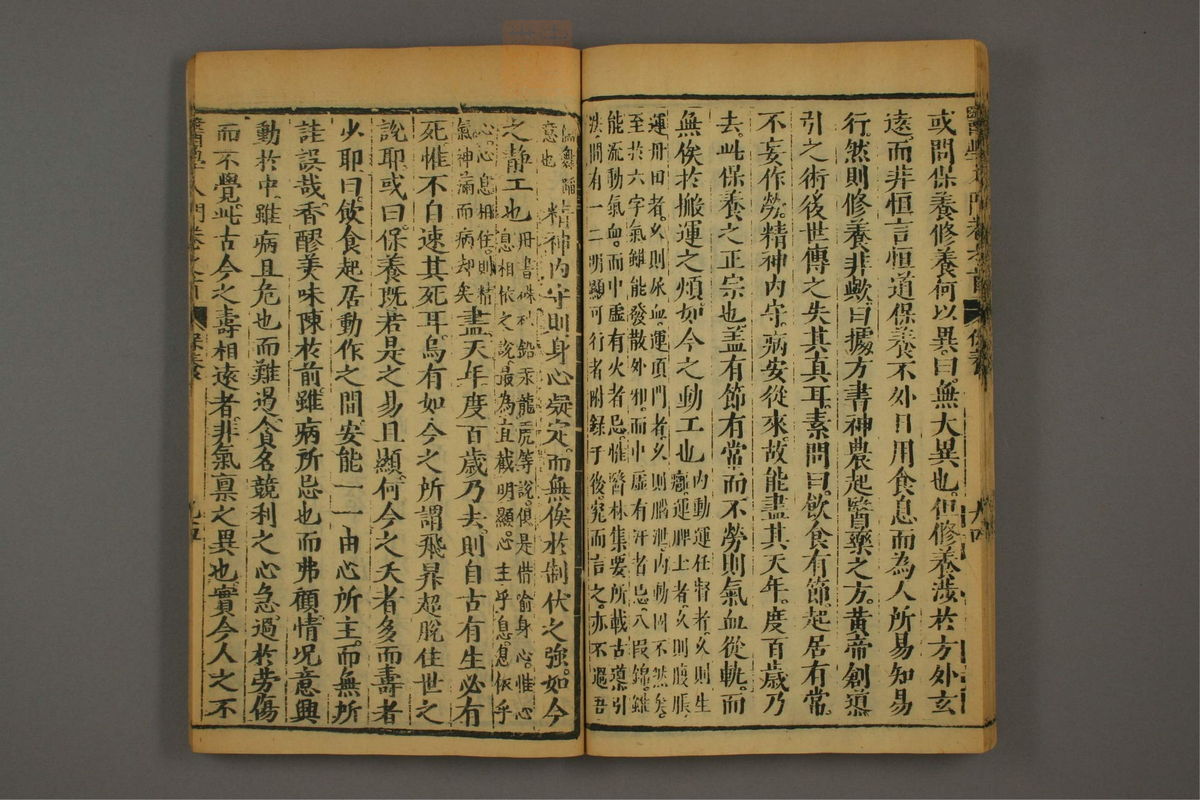 或問保養修養何以異。曰。無大異也。但修養涉於方外玄
遠。而非恒言恒道。保養不外日用食息。而為人所易知易
行。然則修養非歟。曰。據方書。神農起醫藥之方。黃帝創導
引之術。後世傳之失其真耳。素問曰。飲食有節。起居有常。
不妄作勞。精神內守。病安從來。故能盡其天年。度百歲乃
去。此保養之正宗也。蓋有節有常而不勞。則氣血從軌。而
無俟於搬運之煩。如今之動工也
內動運任督者。久則生
癰。運脾土者。久則腹脹。
運丹田者。久則尿血。運頂門者。久則腦泄。內動固不然矣。
至於六字氣。雖能發散外邪。而中虛有汗者忌。八段錦。雖
能流動氣血。而中虛有火者忌。惟醫林集要所載古導引
法。間有一二明顯可行者。附錄于後。究而言之。亦不過吾
儒舞蹈
意也
精神內守。則身心凝定。而無俟於制伏之強。如今
之靜工也
丹書硃砂鉛汞龍虎等說。俱是借喻身心。惟心
息相依之說。最為直截明顯。心主乎息。息依乎
心。心息相依。則精
氣神滿而病却矣
盡天年度百歲乃去。則自古有生必有
死。惟不自速其死耳。烏有如今之所謂飛昇超脫住世之
說耶。或曰。保養既若是之易且顯。何今之夭者多而壽者
少耶。曰。飲食起居動作之間。安能一一由心所主。而無所
詿誤哉。香醪美味陳於前。雖病所忌也而弗顧。情況意興
動於中。雖病且危也而難遏。貪名競利之心急。過於勞傷
而不覺。此古今之壽相遠者。非氣稟之異也。實今人之不